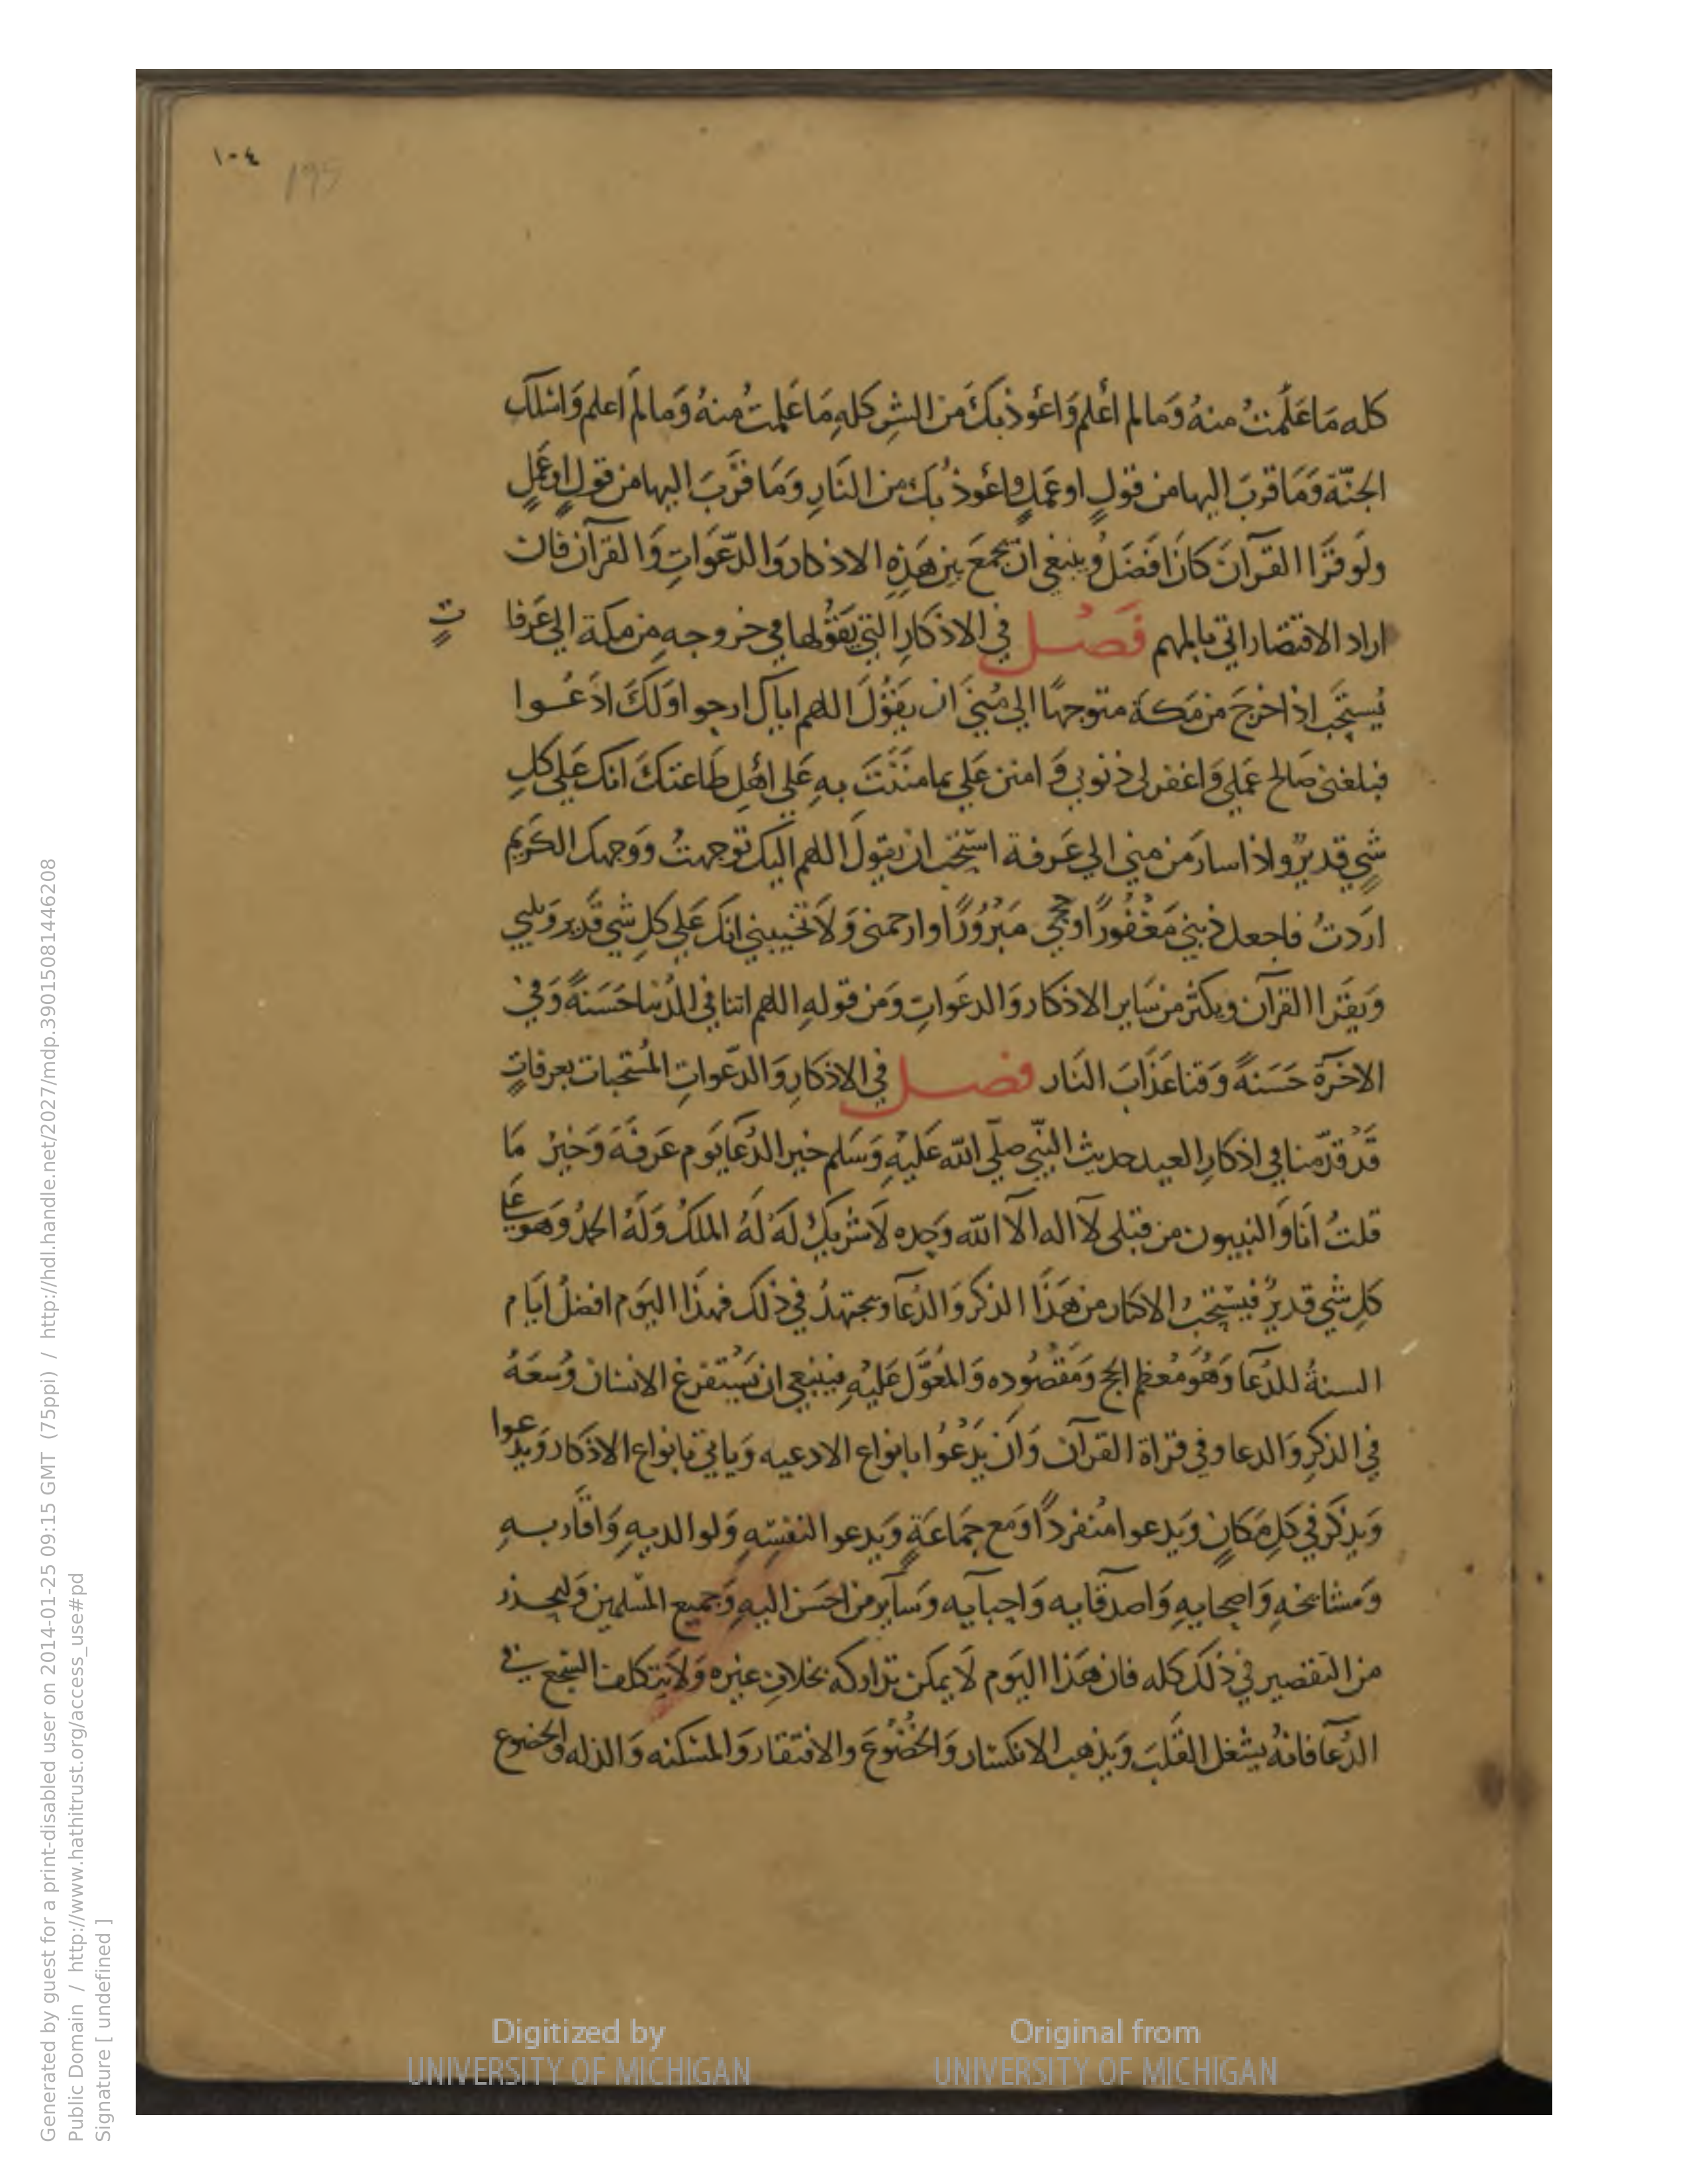 ١٠٤
195
كله مَا عَلَمتُ منهُ وَمالم اعْلم وَاعوُذ بكَ من الشِر كلهِ مَا عَلِمتُ منهُ وَمالم اعلم وَاسلك
الجنّة وَمَا قربَ اليها من قولٍ او عَملٍ واعُوذ بُك من النَارِ وَمَا قرَّبَ اليها من قولٍ اوعَملٍ
ولَو قرَا القرآنَ كانَ افَضَلُ وينبغي ان يجمَعَ بين هَذِهِ الاذكار وَالدّعَوَاتِ وَالقرآن فان
اراد الاقتصار اتي بالمهم فَصُل في الاذكَارِ التي يَقوُلها في خروجهِ من مكة الي عَرفا
تٍ
يُستحَب اذا خرجَ من مَكة متوجهًا الي مُنيَ ان يقوُلَ اللهم اياك ارجوا وَلكَ اذَعُوا
فبلغني صَالح عَملي وَاغفر لي ذنوبي وَامنن عَلي بما مننَتَ بهِ عَلي اهْلِ طَاعتكَ انك عَلي كلِ
شيٍ قديرٌ واذا سارَ من مِني الي عَرفة استحب ان يقولَ اللهم اليك توجهتُ وَوَجهك الكَريم
ارَدتُ فاجعل ذنبي مَغفُورًا وحجي مَبرُورًا وارحمني وَلاَ تخيبني انكَ عَلي كلِ شي قدير وَيلبي
وَيقَرا القرآن ويكثر من سَاير الاذكار وَالدعَواتِ وَمن قولهِ اللهم اتنا في الدُنيا حَسَنةً وَفي
الاخرَة حَسَنةً وَقنا عَذَابَ النَار فصل في الاذكارِ وَالدّعَواتِ المُستحبات بعرفاتٍ
قَدْ قدّمنا في اذكارِ العيد حديث النّبي صلّي اللّه عَليْهِ وَسَلم خير الدُعَا يَوم عَرفَةَ وَخيرُ مَا
قلتُ انَا وَالنبيون من قبلى لاَ اله الاّ اللّه وَحِده لاَ شريكُ لَهُ لهُ الملكُ وَلهُ الحمدُ وَهوَ عَلي
كلِ شيٍ قديرٌ فيستحبُ الاكثار من هَذَا الذكر وَالدُعَآ ويجتهدُ في ذلك فهذَا اليوَم افضلُ ايَام
السنةُ للدّعَآ وَهُوَ مُعظم الحج وَمَقصُوده وَالمعُوَّل عَليْهِ فينبغي ان يَسْتفرغ الانسَان وُسعَهُ
في الذكرِ وَالدعا وفي قراة القرآن وَان يَدْعُوا بانواعِ الادعيه وَياتي بانواع الاذكار وَيَدعوا
وَيذكرَ في كلِ مَكانٍ وَيَدعوا مُنفردًا وَمَع جمَاعَةٍ وَيَدعوا لنفسِهِ وَلوالديهِ وَاقاربهِ
وَمشايخهِ وَاصحابهِ وَاصدَقايه وَاحبآيه وَسَآير من احسَن اليهِ وَجميع المسْلمين وَليحذر
من التقصير في ذلكَ كله فان هَذَا اليَوم لاَ يمكن تداركه بخلافِ غيره وَلاَ يَتكلفُ السَجع في
الدُعَآ فانهُ يشغل القَلبَ وَيذهب الانكسَار وَالخضُوعَ والافتقار وَالمسْكنه وَالذله والخضوع
Digitized by
UNIVERSITY OF MICHIGAN
Original from
UNIVERSITY OF MICHIGAN
Generated by guest for a print-disabled user on 2014-01-25 09:15 GMT (75ppi) / http://hdl.handle.net/2027/mdp.39015081446208
Public Domain / http://www.hathitrust.org/access_use#pd
Signature [ undefined ]